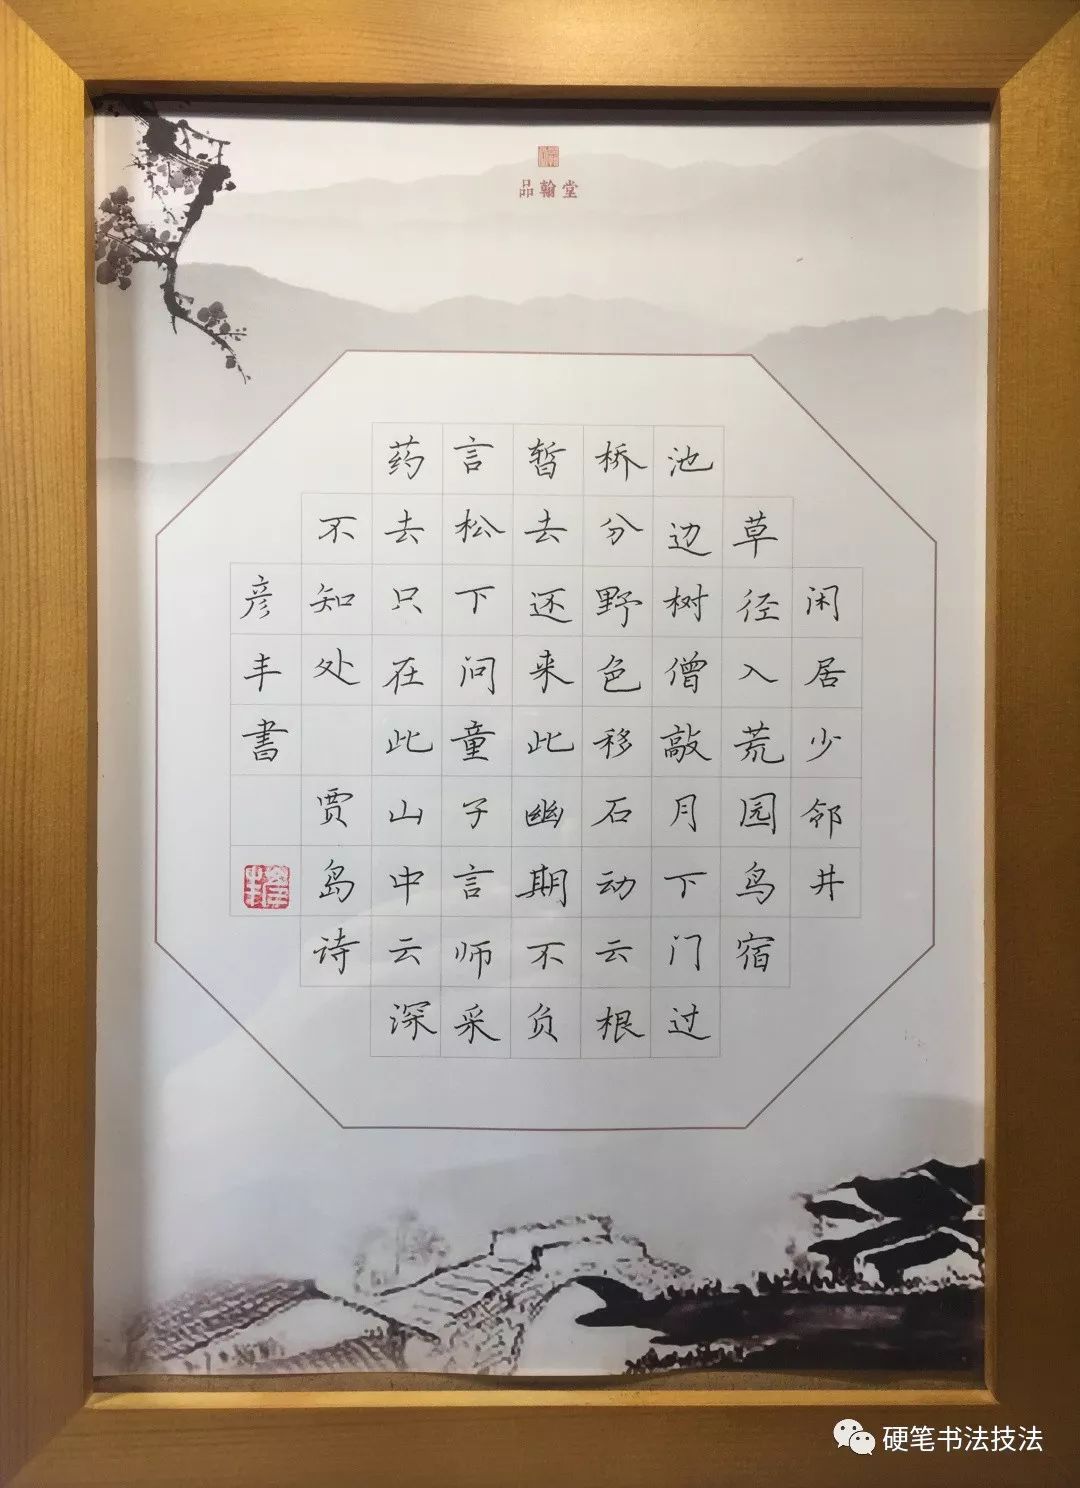 品翰堂
闲居少邻井
草径入荒园鸟宿
池边树僧敲月下门过
桥分野色移石动云根
暂去还来此幽期不负
言松下问童子言师采
药去只在此山中云深
不知处 贾岛诗
彦丰書
硬笔书法技法